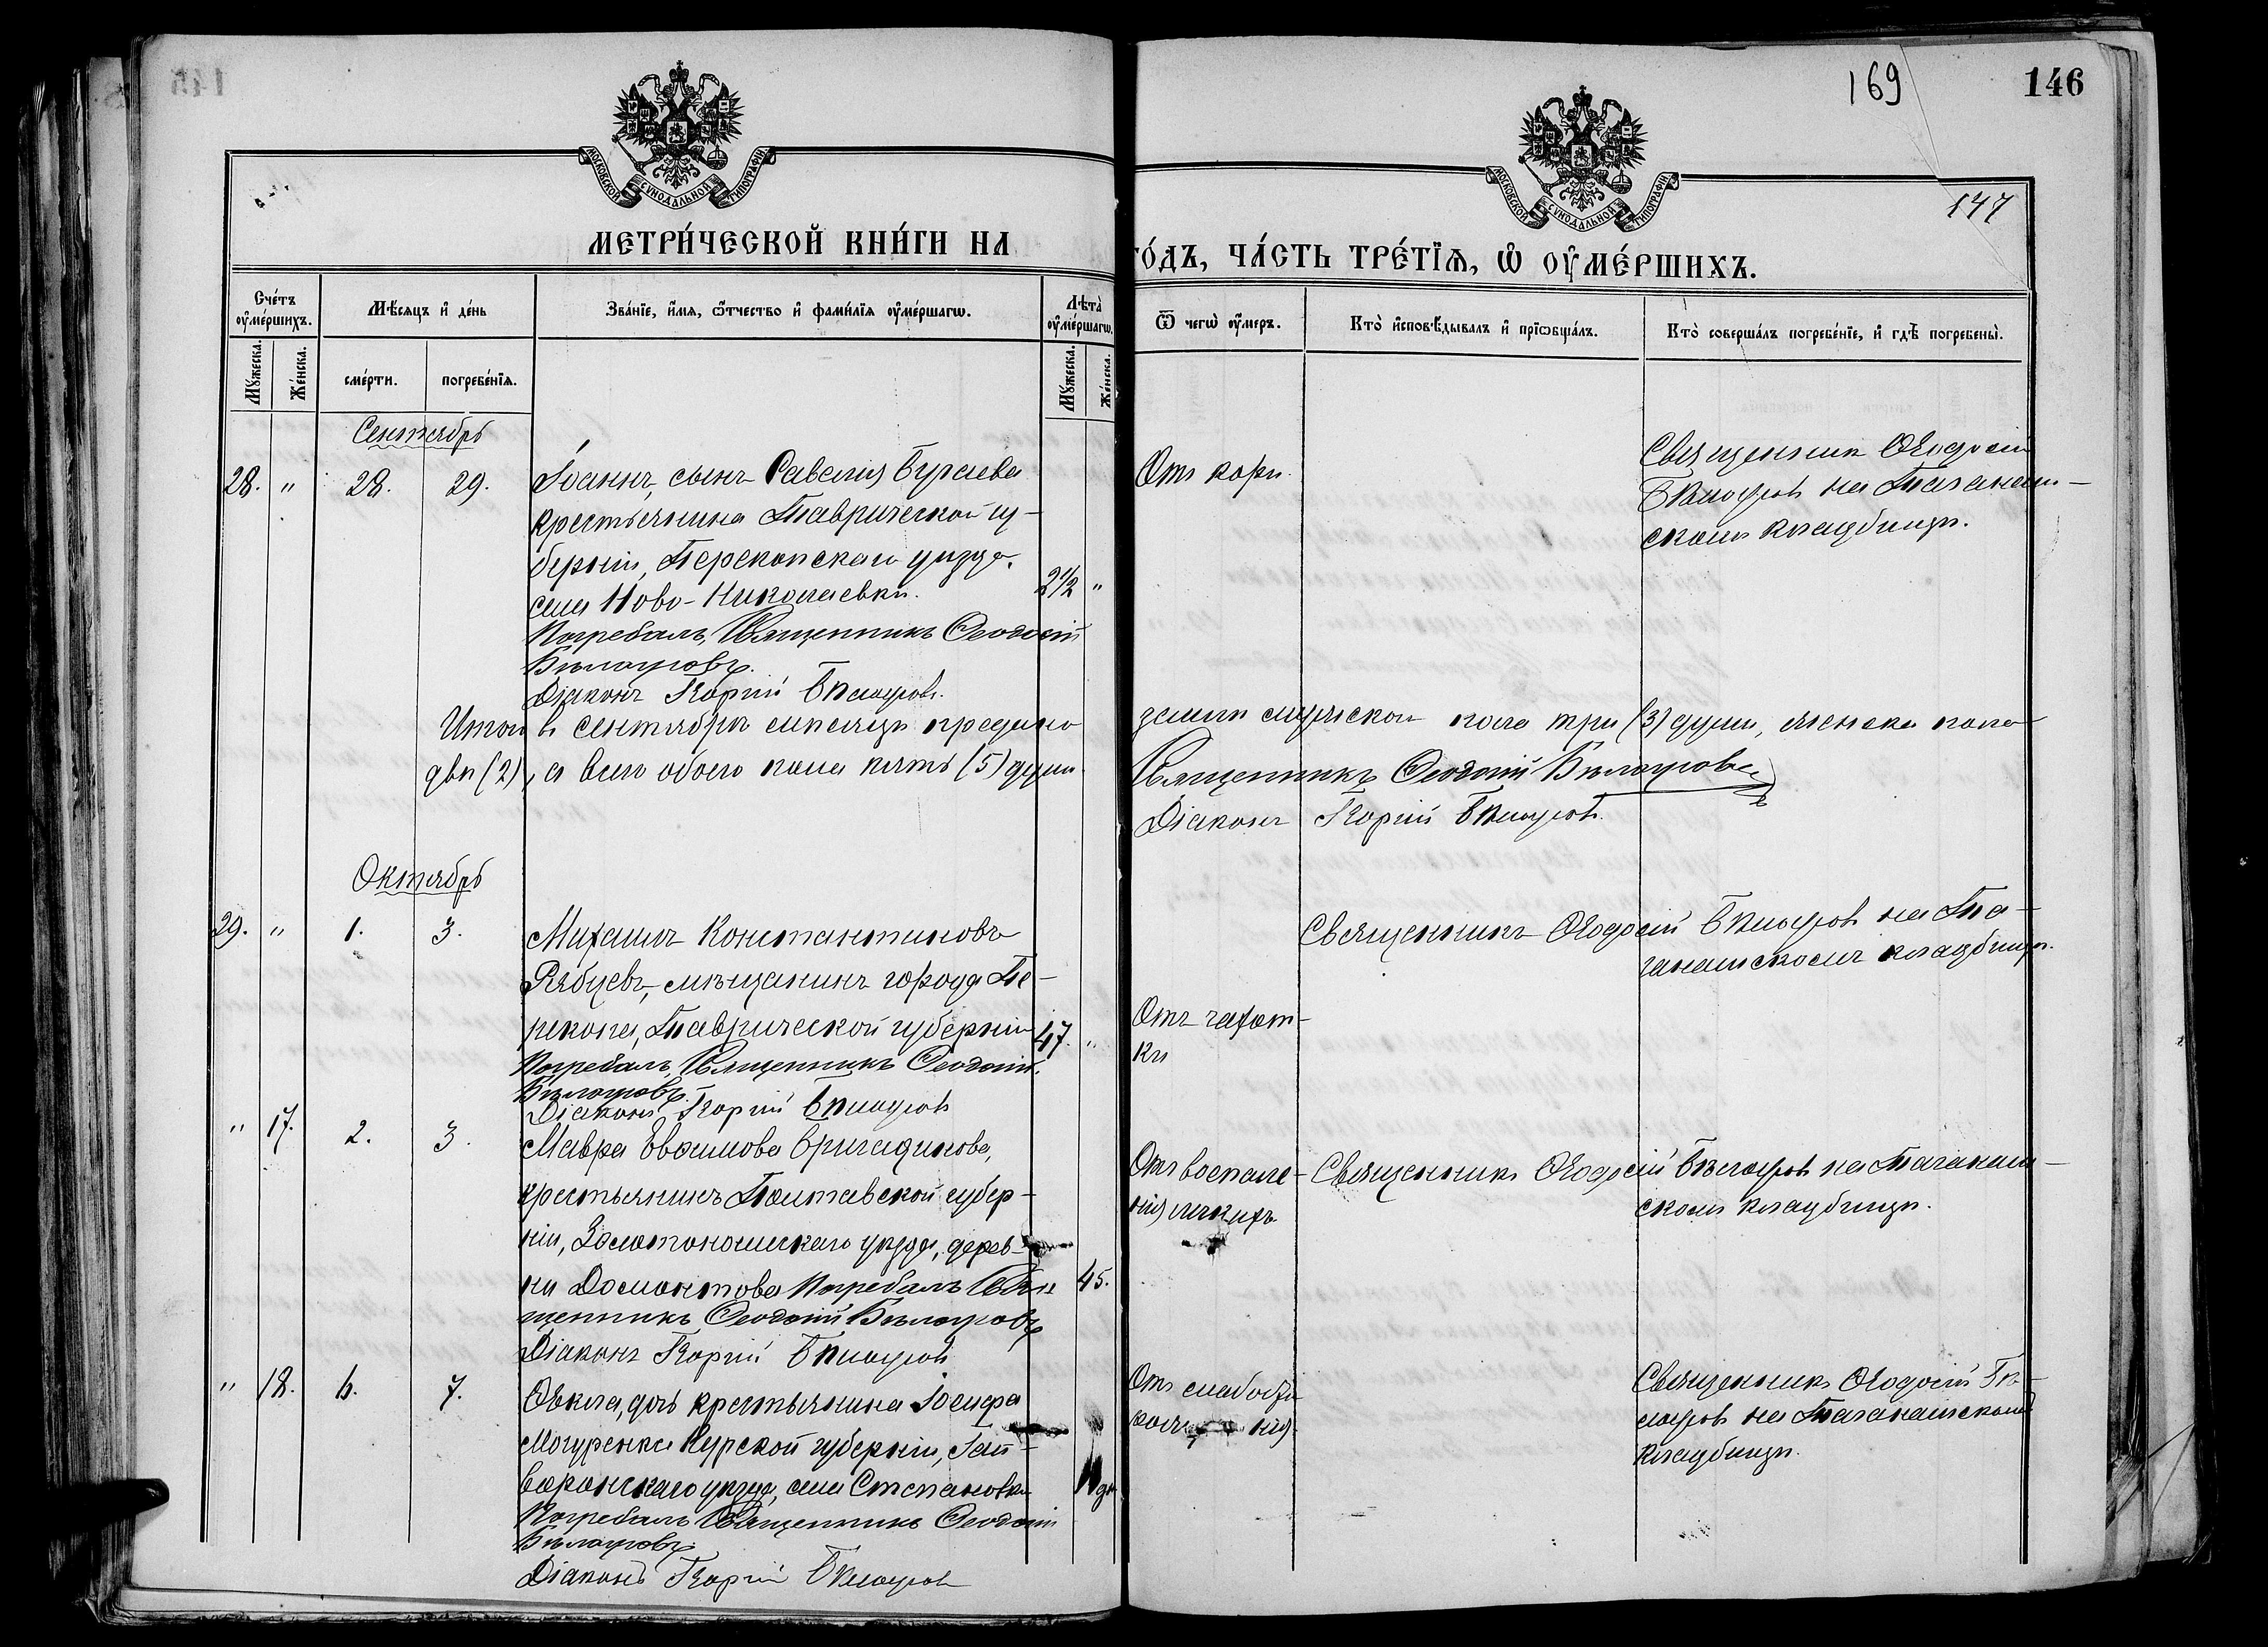 169
146
147
МОСКОВСКОЙ СУНОДАЛЬНОЙ ТИПОГРАФІИ
МОСКОВСКОЙ СУНОДАЛЬНОЙ ТИПОГРАФІИ
МЕТРИ́ЧЕСКОЙ КНИ́ГИ НА
ГО́ДЪ, ЧА́СТЬ ТРЕ́ТЇѦ, Ѡ҆ ОУ҆МЕ́РШИХЪ.
Сче́тъ оу҆ме́ршихъ.
Мѣ́сяцъ и҆ де́нь
Зва́нїе, и҆́мя, ѻ҆́тчество и҆ фами́лїя оу҆ме́ршагѡ.
Лѣ́та оу҆ме́ршагѡ.
Ѿ чегѡ̀ оу҆́меръ.
Кто̀ и҆сповѣ́дывалъ и҆ прїѡбща́лъ.
Кто̀ соверша́лъ погребе́нїе, и҆ гдѣ̀ погребены̀.
Мꙋ́жеска.
Же́нска.
сме́рти.
погребе́нїя.
Мꙋ́жеска.
Же́нска.
Сентябрь
28. " 28. 29.
Іоаннъ, сынъ Савелія Бураева
крестьянина Таврической гу-
берніи, Перекопскаго уѣзда.
села Ново-Николаевки.
2½ "
Погребалъ, Священникъ Ѳеодосій
Бѣлоусовъ.
Діаконъ Георгій Бѣлоусовъ.
Отъ кори.
Священникъ Ѳеодосій
Бѣлоусовъ на Таганаш-
скомъ кладбищѣ.
Итого въ сентябрѣ мѣсяцѣ предано
землѣ мужскаго пола три (3) души, женска пола
двѣ (2), а всего обоего пола пять (5) душъ.
Священникъ Ѳеодосій Бѣлоусовъ
Діаконъ Георгій Бѣлоусовъ.
Октябрь
29. " 1. 3.
Михаилъ Константиновъ
Рябцевъ, мѣщанинъ города Пе-
рекопа, Таврической губерніи
47. "
Погребалъ, Священникъ Ѳеодосій
Бѣлоусовъ.
Діаконъ Георгій Бѣлоусовъ
Отъ чахот-
ки
Священникъ Ѳеодосій Бѣлоусовъ на Та-
ганашскомъ кладбищѣ.
" 17. 2. 3.
Мавра Евфимова Бригадинова,
крестьянинъ Полтавской губер-
ніи, Золотоношскаго уѣзда, дерев-
ни Домонтова Погребалъ Свя-
45.
щенникъ Ѳеодосій Бѣлоусовъ
Діаконъ Георгій Бѣлоусовъ
Отъ воспале-
нія легкихъ
Священникъ Ѳеодосій Бѣлоусовъ на Таганаш-
скомъ кладбищѣ.
" 18. 6. 7.
Ѳекла, дочь крестьянина Іосифа
Курской губерніи, Гай-
воронскаго уѣзда, села Степановки
Погребалъ Священникъ Ѳеодосій
Бѣлоусовъ.
Діаконъ Георгій Бѣлоусовъ
Отъ слабости
Священникъ Ѳеодосій Бѣ-
лоусовъ на Таганашскомъ
кладбищѣ.